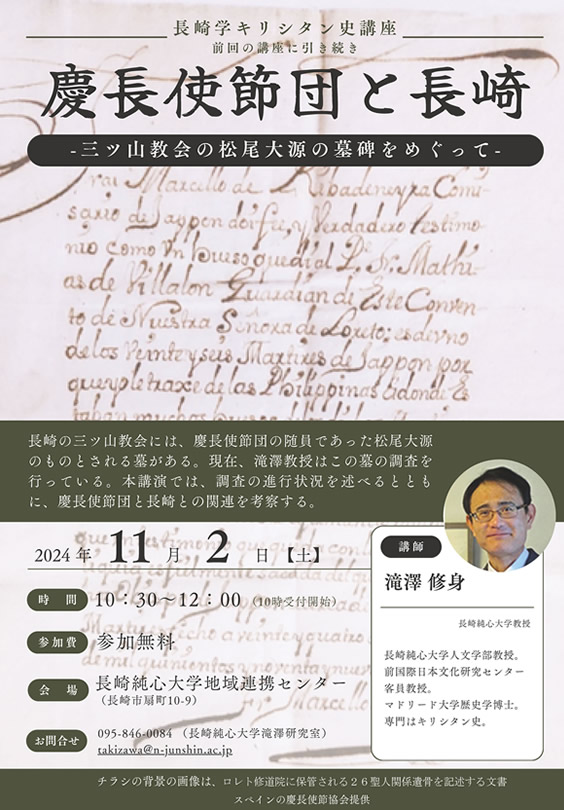 長崎学キリシタン史講座
前回の講座に引き続き
慶長使節団と長崎
-三ツ山教会の松尾大源の墓碑をめぐって-
rai Marcello de Ribadeneyra Comi-
sario de Jappon doi fee, y Verdadero testimo-
nio como Vn huso quedi al P. Fr. Mathi-
as de Villalon Guardian de Este Conven-
to de Nuestra Señora de Loreto: es de vno
de los Veinte y seis Martires de Jappon por
que yo le traxe de las Philippinas donde Es
taban muchos
長崎の三ツ山教会には、慶長使節団の随員であった松尾大源
のものとされる墓がある。現在、滝澤教授はこの墓の調査を
行っている。本講演では、調査の進行状況を述べるととも
に、慶長使節団と長崎との関連を考察する。
2024年 11月 2日【土】
時 間 10:30〜12:00（10時受付開始）
参加費 参加無料
会 場 長崎純心大学地域連携センター
（長崎市扇町10-9）
お問合せ 095-846-0084（長崎純心大学滝澤研究室）
takizawa@n-junshin.ac.jp
講師
滝澤 修身
長崎純心大学教授
長崎純心大学人文学部教授。
前国際日本文化研究センター
客員教授。
マドリード大学歴史学博士。
専門はキリシタン史。
チラシの背景の画像は、ロレト修道院に保管される２６聖人関係遺骨を記述する文書
スペインの慶長使節協会提供